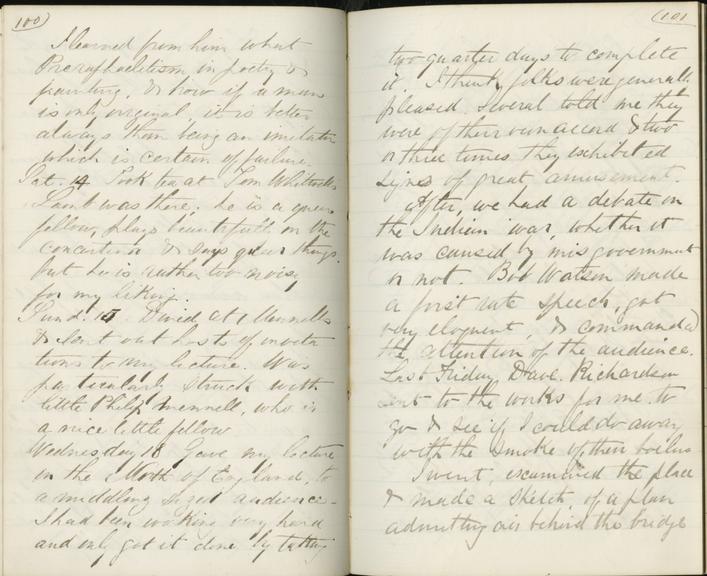 100
I learned from him what
Preraphaelitism, in poetry &
painting, & how if a man
is only original, it is better
always than being an imitator
which is certain of failure.
Sat. 14 Took tea at Tom Whitwell's
was there. he is a queer
fellow, plays beautifully on the
concertina & says queer things.
but he is rather too noisy
for my liking.
Sund. 15 Dined at Mennells
& sent out hosts of invita
tions to my lecture. Was
particularly struck with
little Philip Mennell, who is
a nice little fellow
Wednesday 18 Gave my lecture
in the North of England, to
a middling sized audience -
I had been working very hard
and only got it done by taking
101
two quarter days to complete
it. I think folks were generally
pleased. Several told me they
were of their own accord & two
or three times they exhibited
signs of great amusement.
After, we had a debate on
the Indian war, whether it
was caused by misgovernment
or not. Bob Watson made
a first rate speech, got
very eloquent, & commanded
the attention of the audience.
Last Friday, Dave Richardson
sent to the works for me to
go & see if I could do away
with the smoke of their boilers
I went, examined the place
& made a sketch of a plan
admitting air behind the bridge